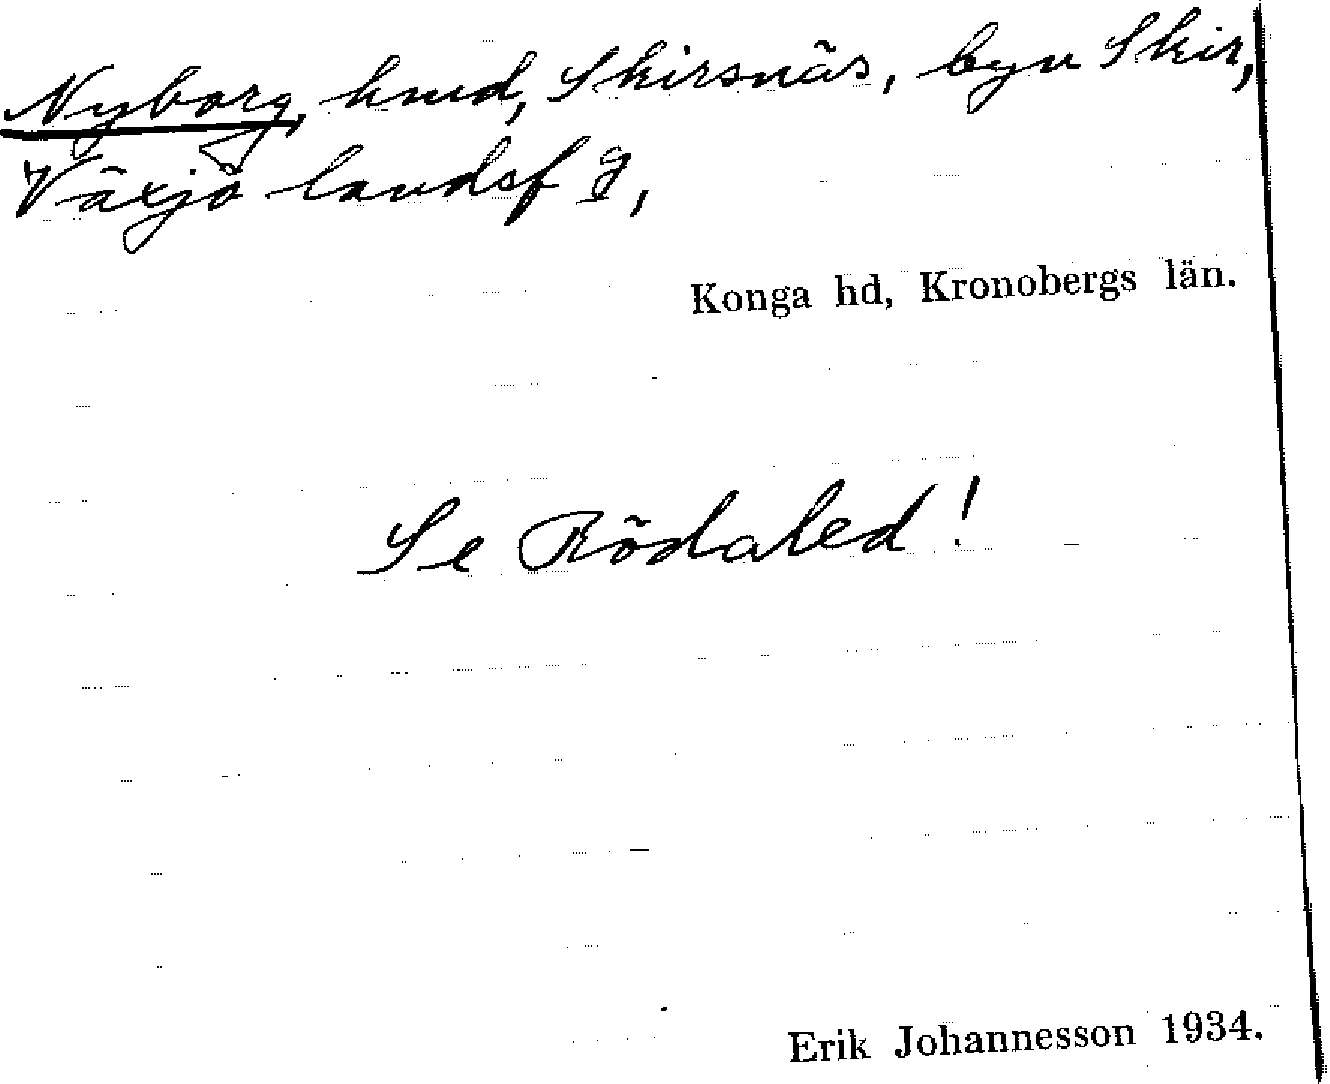 Nyborg, hmd, Skirsnäs, byn Skir,
Växjö landsf g,
Konga hd, Kronobergs län.
Se Rödaled!
Erik Johannesson 1934.